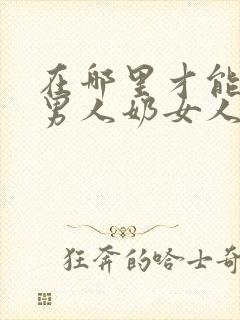 在哪里才能
男人奶女人
狂奔的哈士奇